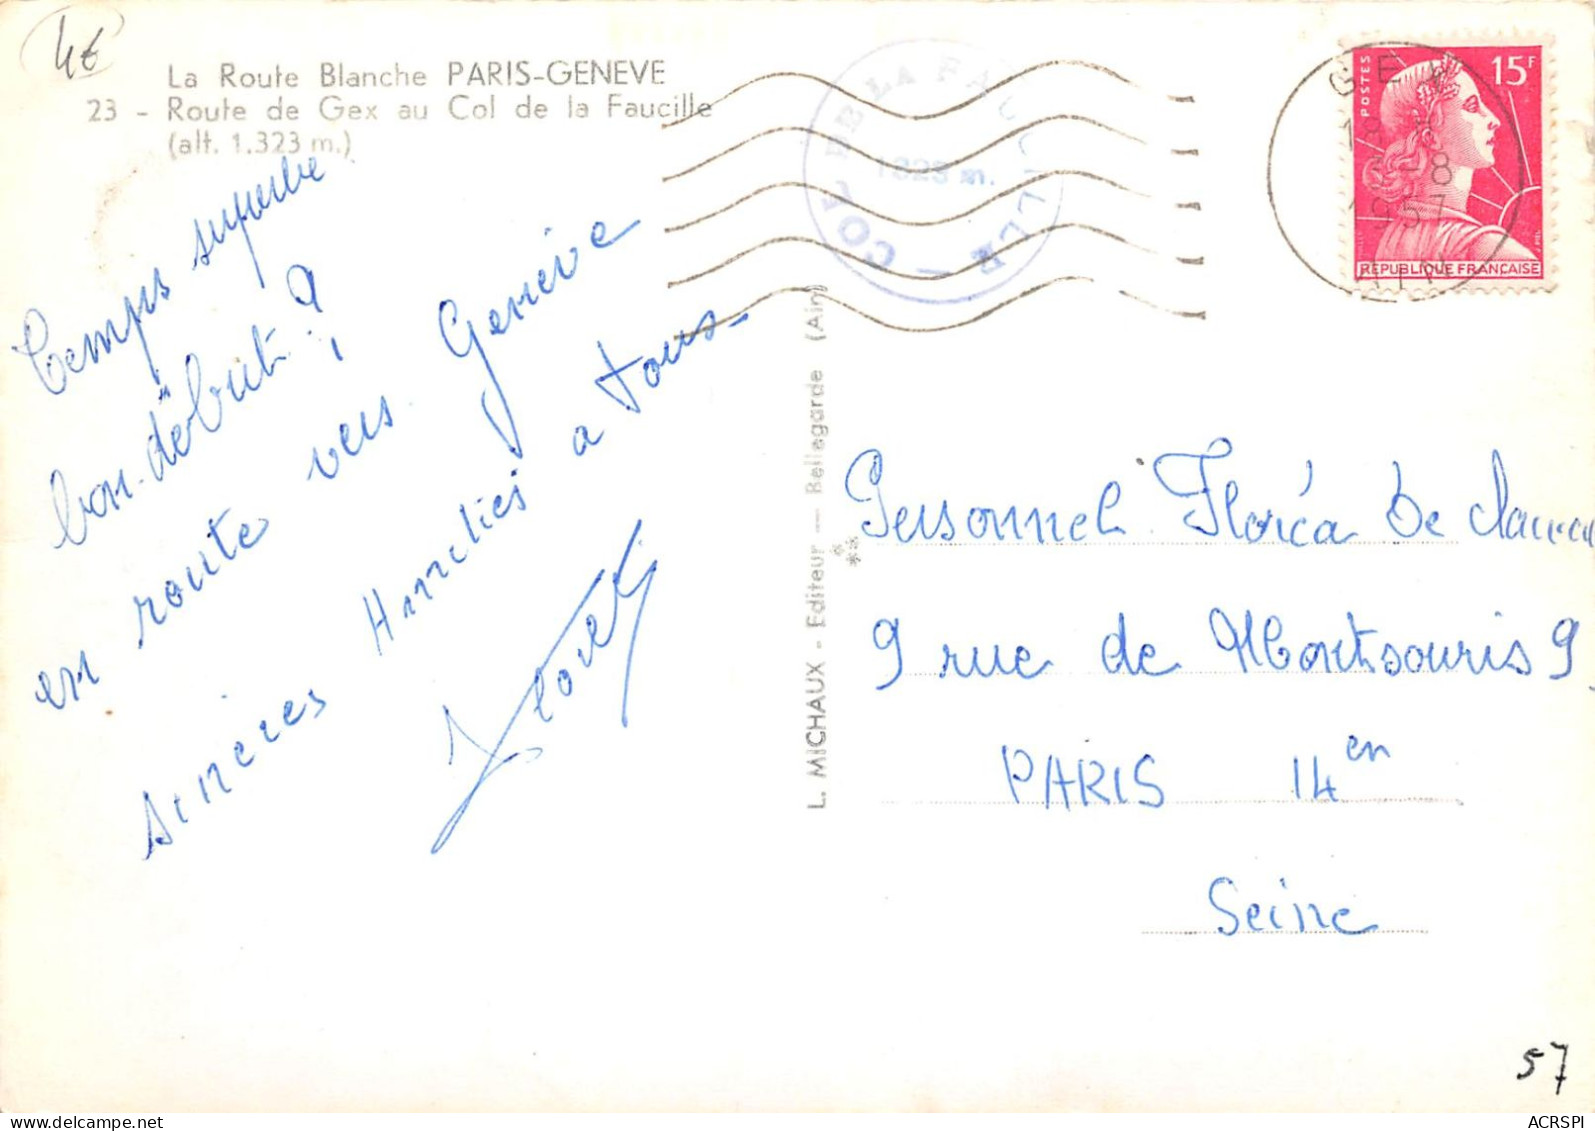 4€
La Route Blanche PARIS-GENEVE
23 - Route de Gex au Col de la Faucille
(alt. 1.323 m.)
Temps superbe
bon début ?
en route vers Genève
sincères Amitiés a tous-
COL DE LA FAUCILLE -
1323 m.
GEX
18 H
3-8
1957
AIN
POSTES
15F
REPUBLIQUE FRANÇAISE
L. MICHAUX - Editeur — Bellegarde (Ain)
Personnel Floréa De
9 rue de Montsouris 9
PARIS 14en
Seine
57
ACRSPI